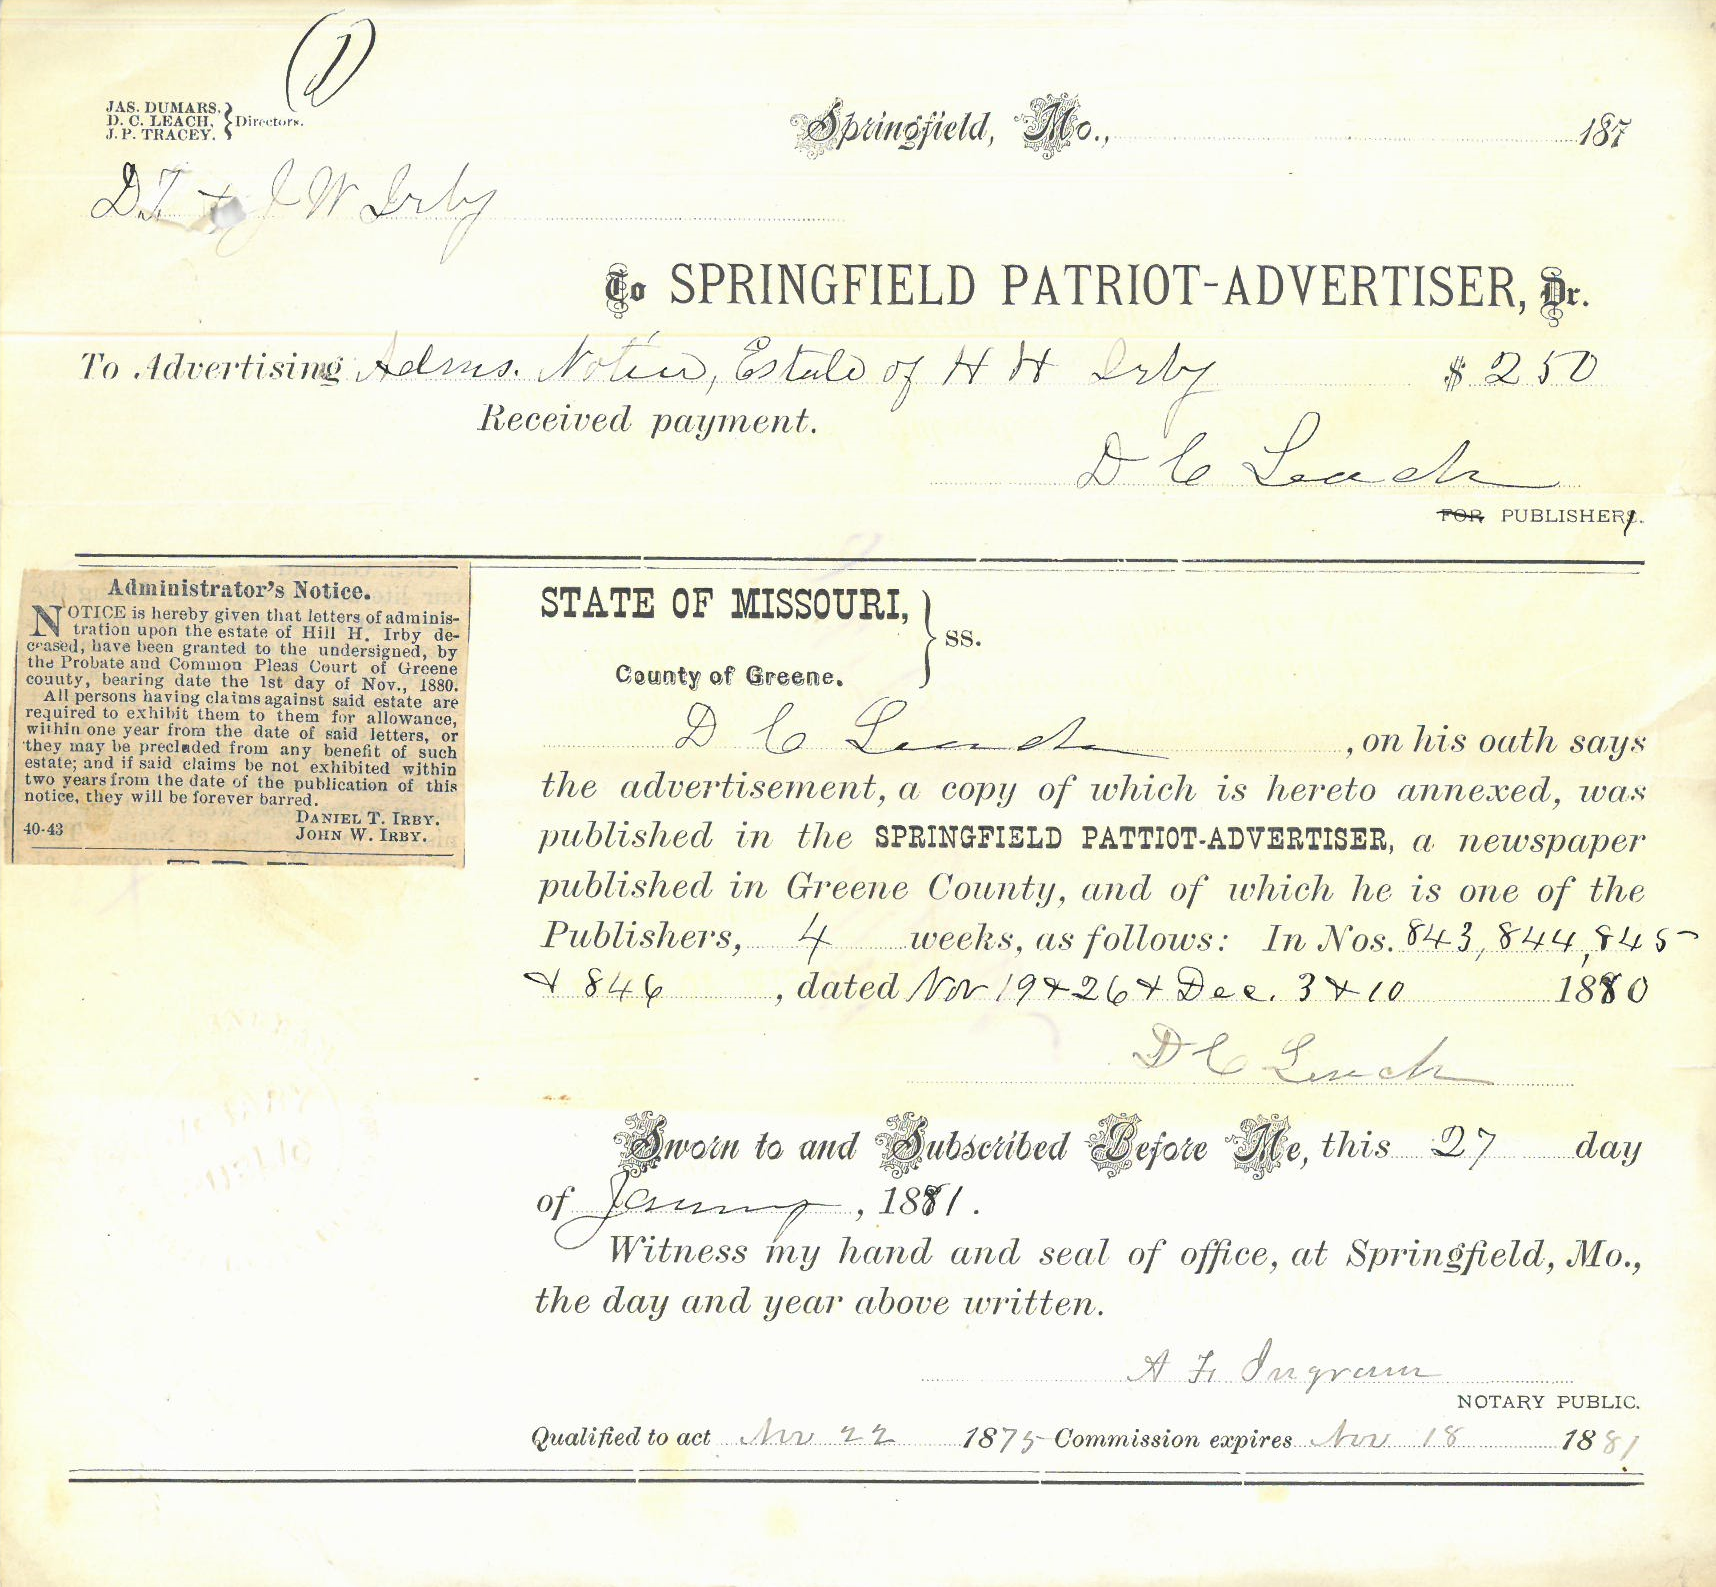 (1)
JAS. DUMARS.
D. C. LEACH,
J. P. TRACEY.
Directors.
Springfield, Mo., 187
D T & J W Irby
To SPRINGFIELD PATRIOT-ADVERTISER, Dr.
To Advertising Adms. Notice, Estate of H H Irby $ 2 50
Received payment.
D C Leach
FOR PUBLISHER.
Administrator's Notice.
NOTICE is hereby given that letters of adminis-
tration upon the estate of Hill H. Irby de-
ceased, have been granted to the undersigned, by
the Probate and Common Pleas Court of Greene
county, bearing date the 1st day of Nov., 1880.
All persons having claims against said estate are
required to exhibit them to them for allowance,
within one year from the date of said letters, or
they may be precluded from any benefit of such
estate; and if said claims be not exhibited within
two years from the date of the publication of this
notice, they will be forever barred.
DANIEL T. IRBY.
40-43 JOHN W. IRBY.
STATE OF MISSOURI,
ss.
County of Greene.
D C Leach, on his oath says
the advertisement, a copy of which is hereto annexed, was
published in the SPRINGFIELD PATTIOT-ADVERTISER, a newspaper
published in Greene County, and of which he is one of the
Publishers, 4 weeks, as follows: In Nos. 843, 844, 845
& 846, dated Nov 19 & 26 & Dec. 3 & 10 1880
D C Leach
Sworn to and Subscribed Before Me, this 27 day
of January, 1881.
Witness my hand and seal of office, at Springfield, Mo.,
the day and year above written.
A F Ingram
NOTARY PUBLIC.
Qualified to act Nov 22 1875 Commission expires Nov 18 1881